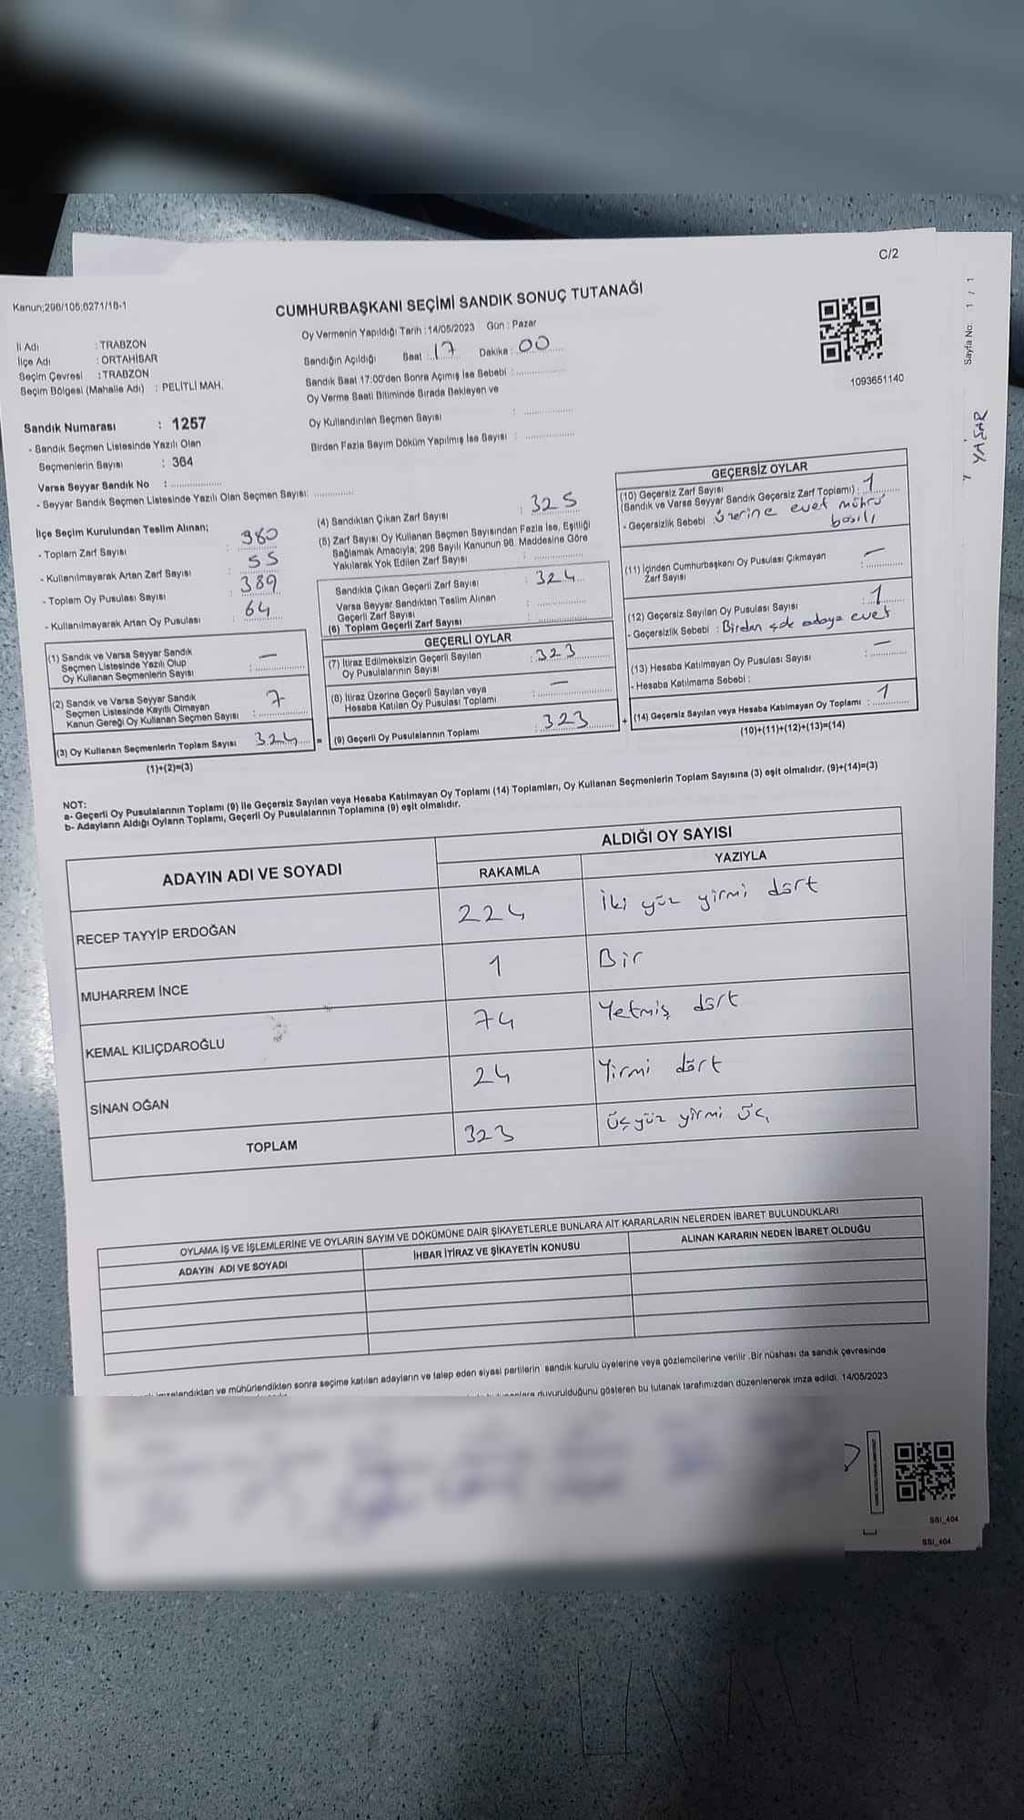 C/2
Kanun;298/105;6271/18-1
CUMHURBAŞKANI SEÇİMİ SANDIK SONUÇ TUTANAĞI
Oy Vermenin Yapıldığı Tarih :14/05/2023 Gün : Pazar
İl Adı : TRABZON
İlçe Adı : ORTAHİSAR
Seçim Çevresi : TRABZON
Seçim Bölgesi (Mahalle Adı) : PELİTLİ MAH.
Sandığın Açıldığı Saat 17 Dakika : 00
Sandık Saat 17:00'den Sonra Açılmış İse Sebebi :
Oy Verme Saati Bitiminde Sırada Bekleyen ve
Oy Kullandırılan Seçmen Sayısı :
Birden Fazla Sayım Döküm Yapılmış İse Sayısı :
1093651140
Sayfa No: 1 / 1
7 YAŞAR
Sandık Numarası : 1257
- Sandık Seçmen Listesinde Yazılı Olan
Seçmenlerin Sayısı : 364
Varsa Seyyar Sandık No :
- Seyyar Sandık Seçmen Listesinde Yazılı Olan Seçmen Sayısı:
İlçe Seçim Kurulundan Teslim Alınan;
- Toplam Zarf Sayısı : 380
- Kullanılmayarak Artan Zarf Sayısı : 55
- Toplam Oy Pusulası Sayısı : 389
- Kullanılmayarak Artan Oy Pusulası : 64
(1) Sandık ve Varsa Seyyar Sandık
Seçmen Listesinde Yazılı Olup
Oy Kullanan Seçmenlerin Sayısı : —
(2) Sandık ve Varsa Seyyar Sandık
Seçmen Listesinde Kayıtlı Olmayan
Kanun Gereği Oy Kullanan Seçmen Sayısı : 7
(3) Oy Kullanan Seçmenlerin Toplam Sayısı 324 =
(1)+(2)=(3)
(4) Sandıktan Çıkan Zarf Sayısı : 325
(5) Zarf Sayısı Oy Kullanan Seçmen Sayısından Fazla İse, Eşitliği
Sağlamak Amacıyla; 298 Sayılı Kanunun 98. Maddesine Göre
Yakılarak Yok Edilen Zarf Sayısı :
Sandıkta Çıkan Geçerli Zarf Sayısı : 324
Varsa Seyyar Sandıktan Teslim Alınan
Geçerli Zarf Sayısı :
(6) Toplam Geçerli Zarf Sayısı :
GEÇERLİ OYLAR
(7) İtiraz Edilmeksizin Geçerli Sayılan
Oy Pusulalarının Sayısı : 323
(8) İtiraz Üzerine Geçerli Sayılan veya
Hesaba Katılan Oy Pusulası Toplamı : —
(9) Geçerli Oy Pusulalarının Toplamı : 323 +
GEÇERSİZ OYLAR
(10) Geçersiz Zarf Sayısı
(Sandık ve Varsa Seyyar Sandık Geçersiz Zarf Toplamı) : 1
- Geçersizlik Sebebi : üzerine evet mührü
basılı
(11) İçinden Cumhurbaşkanı Oy Pusulası Çıkmayan
Zarf Sayısı : —
(12) Geçersiz Sayılan Oy Pusulası Sayısı : 1
- Geçersizlik Sebebi : Birden çok adaya evet
(13) Hesaba Katılmayan Oy Pusulası Sayısı : —
- Hesaba Katılmama Sebebi :
(14) Geçersiz Sayılan veya Hesaba Katılmayan Oy Toplamı : 1
(10)+(11)+(12)+(13)=(14)
NOT:
a- Geçerli Oy Pusulalarının Toplamı (9) ile Geçersiz Sayılan veya Hesaba Katılmayan Oy Toplamı (14) Toplamları, Oy Kullanan Seçmenlerin Toplam Sayısına (3) eşit olmalıdır. (9)+(14)=(3)
b- Adayların Aldığı Oyların Toplamı, Geçerli Oy Pusulalarının Toplamına (9) eşit olmalıdır.
ADAYIN ADI VE SOYADI ALDIĞI OY SAYISI
RAKAMLA YAZIYLA
RECEP TAYYİP ERDOĞAN 224 İki yüz yirmi dört
MUHARREM İNCE 1 Bir
KEMAL KILIÇDAROĞLU 74 Yetmiş dört
SİNAN OĞAN 24 Yirmi dört
TOPLAM 323 Üçyüz yirmi üç
OYLAMA İŞ VE İŞLEMLERİNE VE OYLARIN SAYIM VE DÖKÜMÜNE DAİR ŞİKAYETLERLE BUNLARA AİT KARARLARIN NELERDEN İBARET BULUNDUKLARI
ADAYIN ADI VE SOYADI İHBAR İTİRAZ VE ŞİKAYETİN KONUSU ALINAN KARARIN NEDEN İBARET OLDUĞU
mühürlendikten sonra seçime katılan adayların ve talep eden siyasi partilerin sandık kurulu üyelerine veya gözlemcilerine verilir .Bir nüshası da sandık çevresinde
duyurulduğunu gösteren bu tutanak tarafımızdan düzenlenerek imza edildi. 14/05/2023
SSI_404
SSI_404